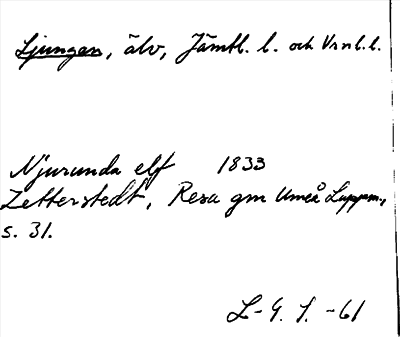 Ljungan, älv, Jämtl. l. och Vrnl. l.
Njurunda elf 1833
Zetterstedt, Resa gm Umeå Lappm.,
s. 31.
L-G. J. -61